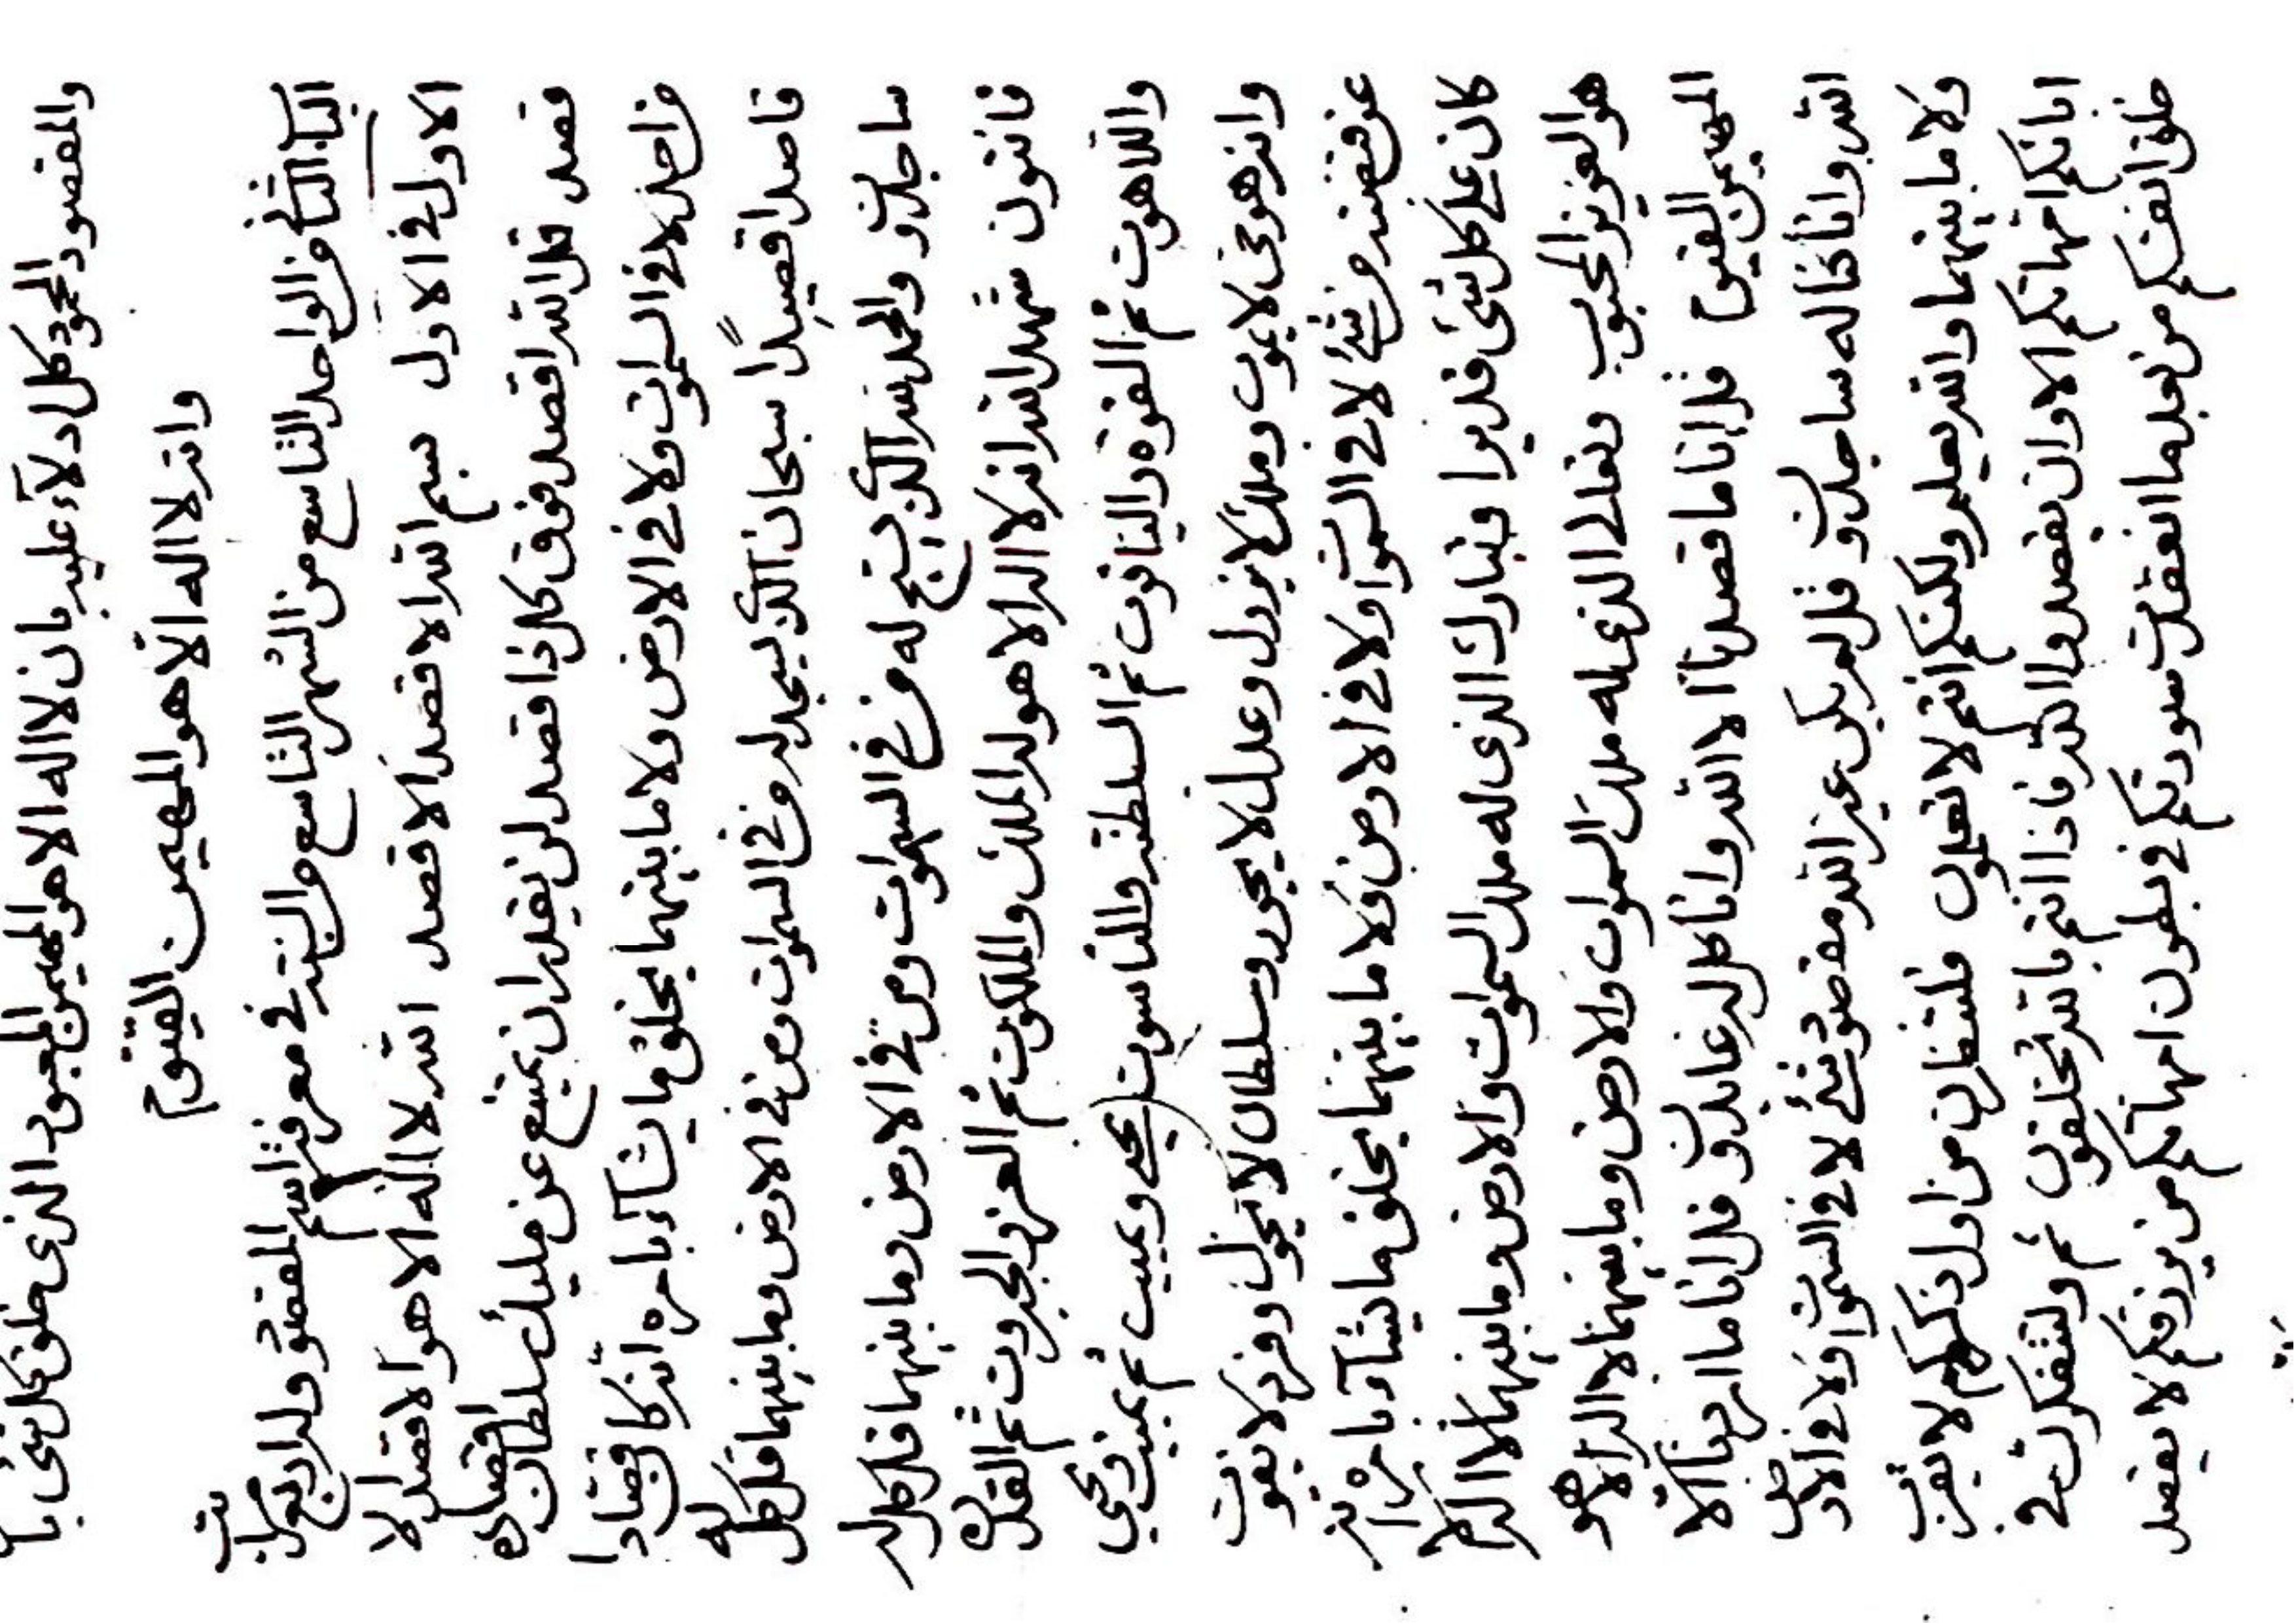 والمقصود المحمود كل ادلاء عليه بان لا اله الا هو المهيمن المحبوب الذى خلق كل شئ با
وانه لا اله الا هو المهيمن القيوم
الباب الثانى من الواحد التاسع من الشهر التاسع من السنة فى معرفة اسم المقصود وله اربع مراتب
الاول فى الاول بسم الله الاقصد الاقصد الله لا اله الا هو الاقصد الا
قصد قل الله اقصد فوق كل ذا اقصد لن يقدر ان يمتنع عن مليك سلطان اقصاده
من احد لا فى السموات ولا فى الارض ولا ما بينهما يخلق ما يشآء بامره انه كان قصادا
قاصدا قصيدًا سبحان الذى يسجد له من فى السموات ومن فى الارض وما بينهما قل كل له
ساجدون والحمد لله الذى يسبح له من فى السموات ومن فى الارض وما بينهما قل كل له
قانتون شهد الله انه لا اله الا هو له الملك والملكوت ثم العز والجبروت ثم القدرة
واللاهوت ثم القوة والياقوت ثم السلطنة والناسوت يحيى ويميت ثم يميت ويحيى
وانه هو حى لا يموت وملك لا يزول وعدل لا يجور وسلطان لا يحول وفرد لا يفوت
عن قبضته من شئ لا فى السموات ولا فى الارض ولا ما بينهما يخلق ما يشآء بامره انه
كان على كل شئ قديرا وتبارك الذى له ملك السموات والارض وما بينهما لا اله الا
هو العزيز المحبوب وتعالى الذى له ملك السموات والارض وما بينهما لا اله الا هو
المهيمن القيوم قل انا ما قصدنا الا الله وانا كل له عابدون قل انا ما اردنا الا
الله وانا كنا له ساجدون قل لم يكن غير الله مقصود شئ لا فى السموات ولا فى الارض
ولا ما بينهما والله يعلم ولكنكم انتم لا تعلمون فلتنظرن من اول ذكركم لا يقرب
ابائكم امهاتكم الا وان يقصدوا الله فاذا انتم بالله تخلقون ثم ولتتفكرن فى
خلق انفسكم من بعد ما انعقدت صورتكم فى بطون امهاتكم من يرزقكم لا يقصد